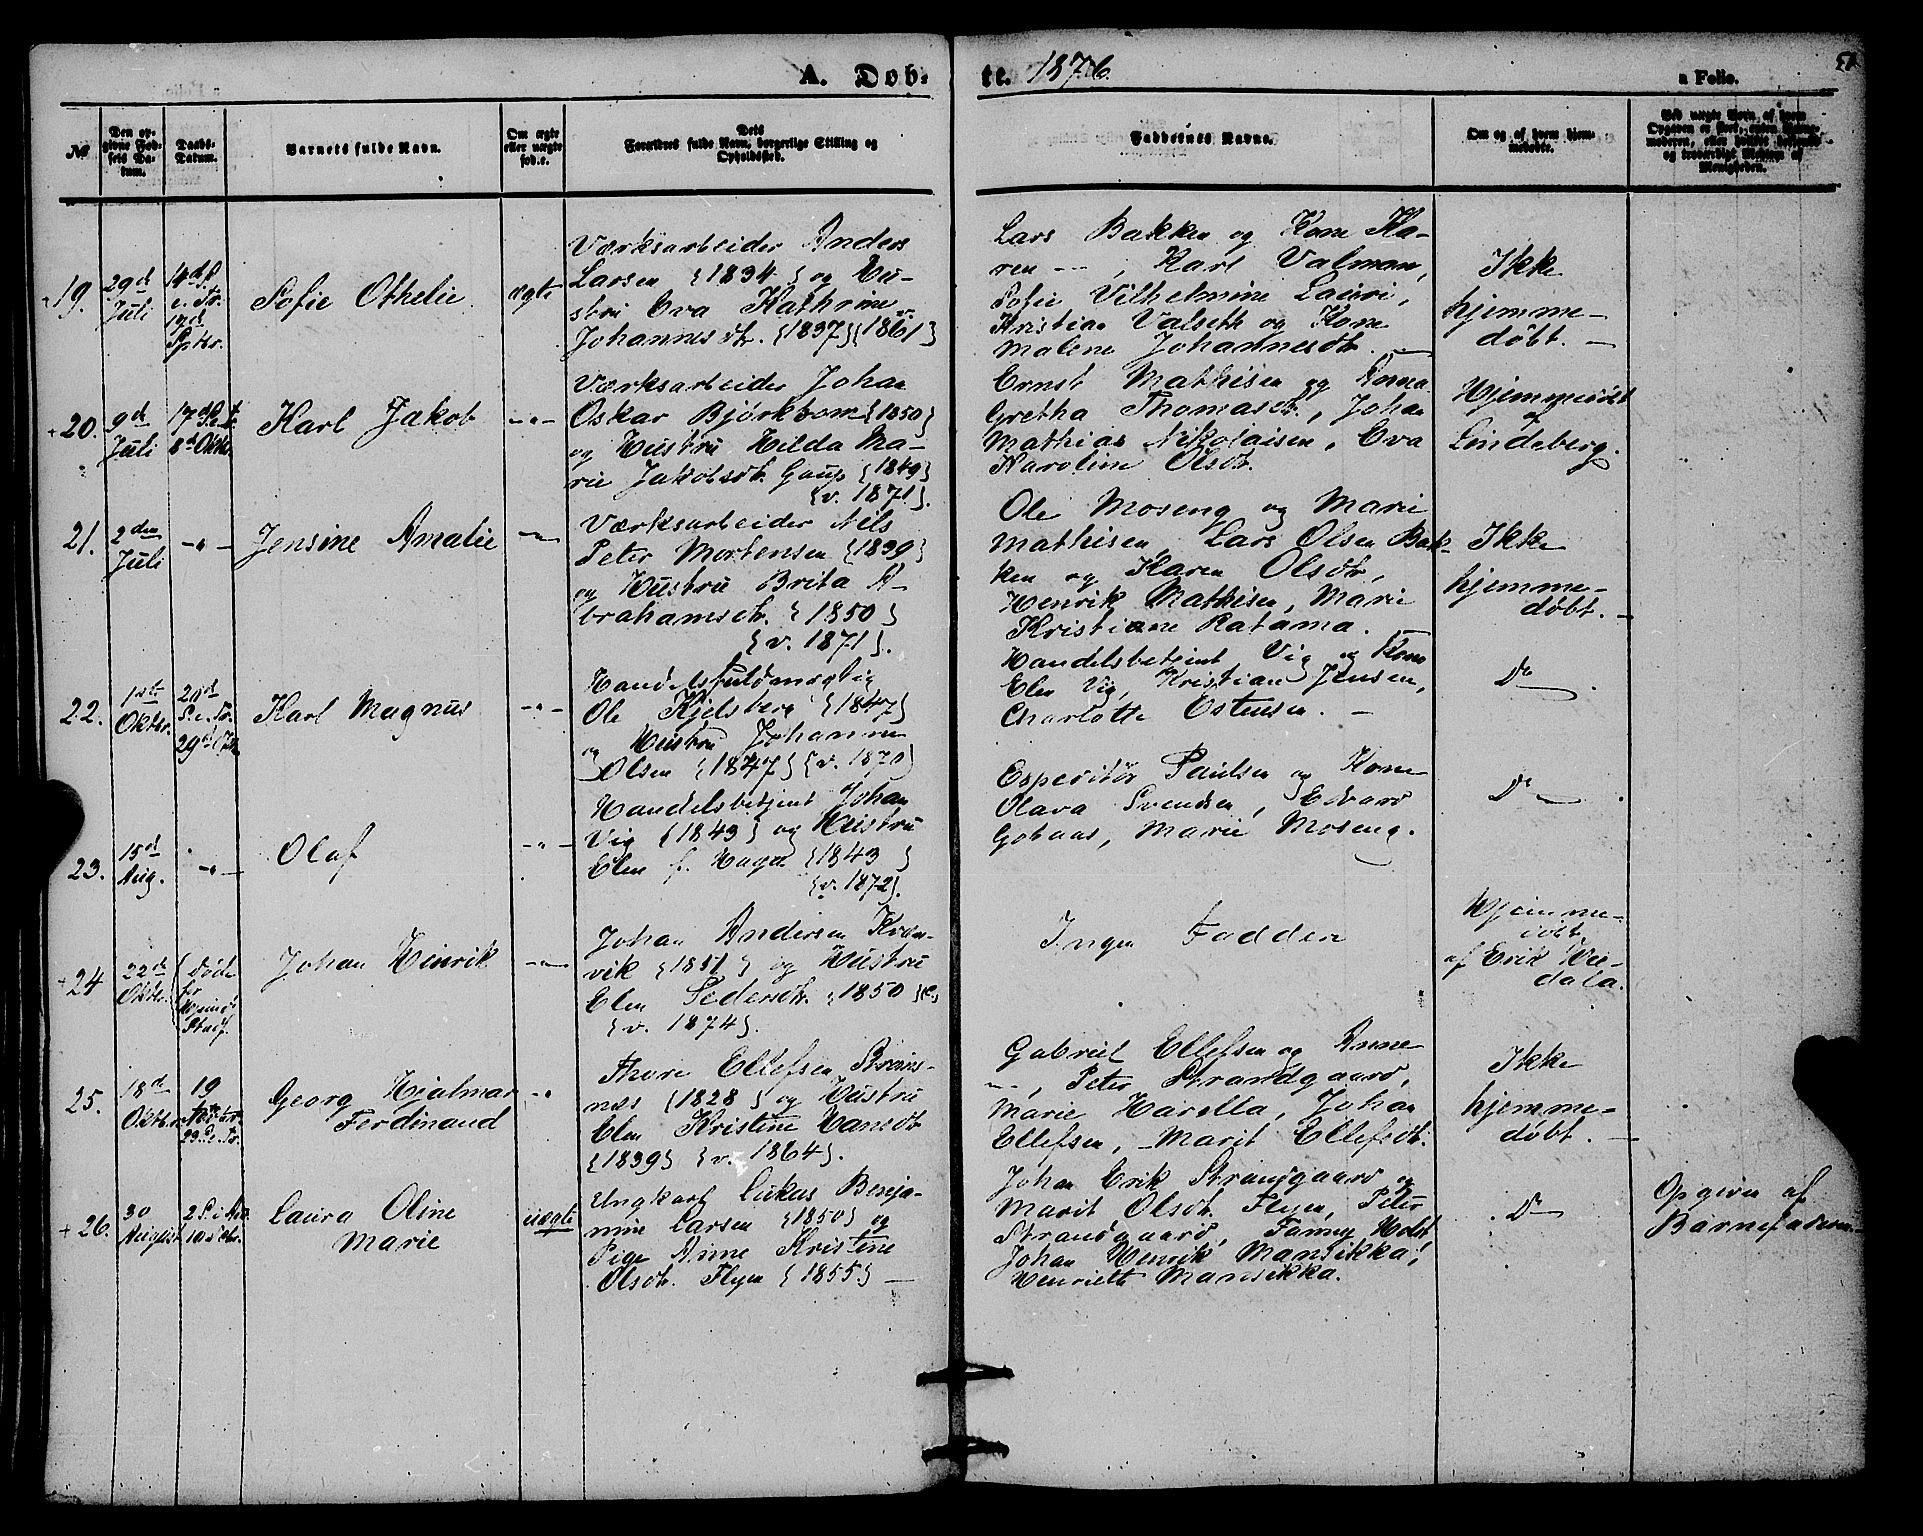 A. Døb-
te. 1876.
a Folio.
№
Den op-
givne Fød-
sels Da-
tum.
Daabs-
Datum.
Barnets fulde Navn.
Om ægte
eller uægte
fød.e.
Dets
Forældres fulde Navn, borgerlige Stilling og
Opholdssted.
Faddernes Navne.
Om og af hvem hjem-
medøbte.
19.
29d
Juli
Sofie Othelie
ægte
Værksarbeider Anders
Larsen {1834} og Hu-
stru Eva Kathrine
Johannesdtr. {1837} {v. 1861}
Lars Bakken og Kone Ka-
ren --- , Karl Valman,
Sofie Vilhelmine Lauri,
Kristian Valseth og Kone
Malene Johannesdtr. —
Ikke
hjemme-
døbt. —
20.
9d
Juli
8d Oktbr.
Karl Jakob
-"-
Værksarbeider Johan
Oskar Bjørkbom {1850}
og Hustru Hilda Ma-
rie Jakobsdtr. Gaup {1849}
{v. 1871}.
Ernst Mathisen og Anna
Gretha Thomasdtr., Johan
Mathias Nikolaisen, Eva
Karoline Olsdtr.
Hjemmedøbt
af
Lindeberg.
21.
2den
Juli
-"-
Jensine Amalie
-"-
Værksarbeider Nels
Peter Mortensen {1839}
og Hustru Brita A-
brahamsdtr. {1850}
{v. 1871}.
Ole Moseng og Marie
Mathisen, Lars Olsen Bak-
ken og Karen Olsdtr,
Henrik Mathisen, Marie
Kristiane Ratama.
Ikke
hjemme-
døbt. —
22.
1ste
Oktbr.
20d
S. e. Tr.
29d Oktbr
Karl Magnus
-"-
Handelsfuldmægtig
Ole Kjelsberg {1847}
og Hustru Johanne
Olsen {1847} {v. 1870}
Handelsbetjent Vig og Kone
Elen Vig, Kristian Jensen,
Charlotte Estensen. —
Do
23.
15d
Aug.
-"-
Olaf
-"-
Handelsbetjent Johan
Vig {1843} og Hustru
Elen f. Hagen {1843}
{v. 1872}.
Expeditør Paulsen og Kone
Olava Svendsen, Edvard
Gobaas, Marie Moseng.
Do
24
22de
Oktbr.
Døde
før
Hjemdb.
Stadf.
Johan Hinrik
-"-
Johan Andersen Kvæn-
vik {1851} og Hustru
Elen Pedersdtr. {1850}
{v. 1874}.
Ingen Faddere
Hjemme-
døbt
af Erik Wei-
dala.
25.
18d
Oktbr.
19
Georg Hjalmar
Ferdinand
-"
Thore Ellefsen Strøms-
næs {1828} og Hustru
Elen Kristine Hansdtr
{1839} {v. 1864}.
Gabriel Ellefsen og Anne
---, Peter Strandgaard,
Marie Harella, Johan
Ellefsen, Marit Ellefsdtr.
Ikke
hjemme-
døbt. —
26.
30
August
Laura Oline
Marie
uægte
Ungkarl Lukas Benja-
min Larsen {1850} og
Pige Anne Kristine
Olsdtr. Flyen {1855} —
Johan Erik Strandgaard og
Marit Olsdtr. Flyen, Peter
Strandgaard, Fanny Holst
Johan Henrik Mansikka,
Henriette Mansikka.
Do
Opgiven af
Barnefaderen